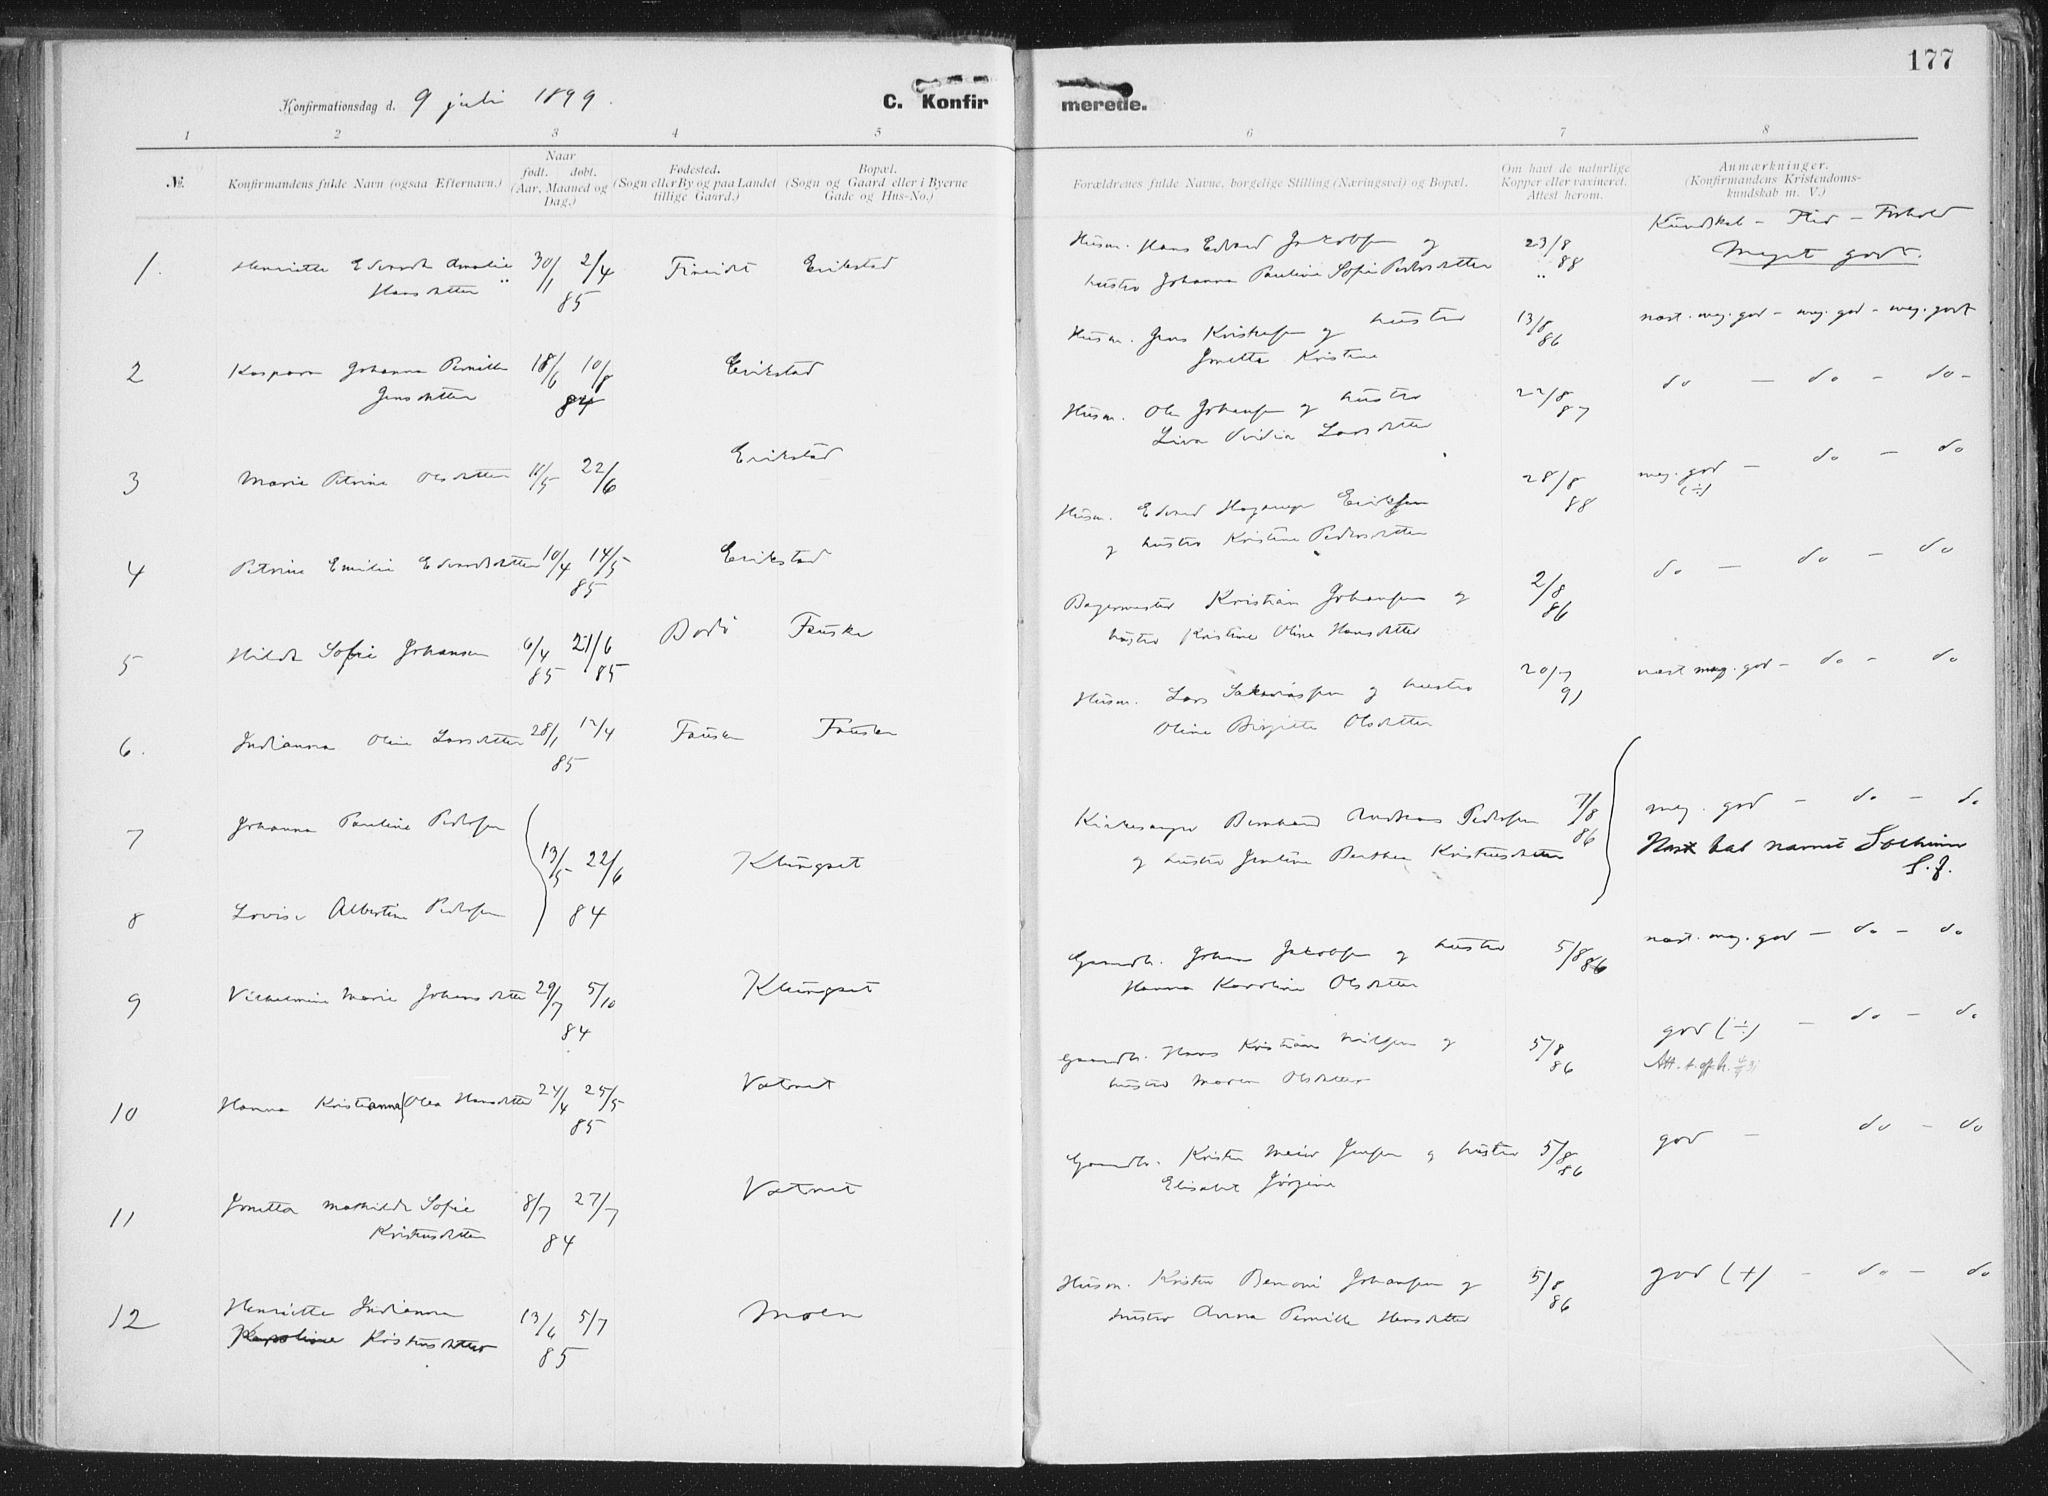 177
Konfirmationsdag d. 9 juli 1899.
C. Konfirmerede.
1 2 3 4 5 6 7 8
№.
Konfirmandens fulde Navn (ogsaa Efternavn.)
Naar
født. døbt.
(Aar, Maaned og
Dag.)
Fødested.
(Sogn eller By og paa Landet
tillige Gaard.)
Bopæl.
(Sogn og Gaard eller i Byerne
Gade og Hus-No.)
Forældrenes fulde Navne, borgelige Stilling (Næringsvei) og Bopæl.
Om havt de naturlige
Kopper eller vaxineret.
Attest herom.
Anmærkninger.
(Konfirmandens Kristendoms-
kundskab m. V.)
Kundskab — Flid — Forhold
1. Henriette Edvarda Amalie 30/1 2/4 Fineidet Erikstad
Hansdatter " 85
Husm. Hans Edvard Jakobsen og 23/8
hustro Johanna Pauline Sofie Pedersdatter " 88
Meget godt.
2 Kaspara Johanna Pernille 18/6 10/8 Erikstad
Jensdatter 84
Husm. Jens Kristofersen og hustro 13/8
Jonetta Kristine 86
næst. meg. god — meg. god — meg. godt
3 Marie Petrine Olsdatter 11/5 22/6 Erikstad
Husm. Ole Johansen og hustro 22/8
Lina Ovidia Larsdatter 87
do — do — do —
4 Petrine Emilie Edvardsdatter 10/4 14/5 Erikstad
85
Husm. Edvard Hagerup Eriksen 28/8
og hustro Kristine Pedersdatter 88
meg. god — do — do
(÷)
5 Hilda Sofie Johansen 6/4 21/6 Bodø Fauske
85 85
Bagermester Kristian Johansen og 2/8
hustro Kristine Oline Hansdatter 86
do — do — do
6. Indianna Oline Larsdatter 28/1 12/4 Fausken Fausken
85
Husm. Lars Sakariassen og hustro 20/7
Oline Birgitte Olsdatter 91
næst meg. god — do — do
7 Johanna Pauline Pedersen
13/5 22/6 Klungset
8 Lovise Albertine Pedersen 84
Kirkesanger Bernhard Andreas Pedersen 7/8
og hustro Jentine Berthea Kristensdatter 86
meg. god — do — do
9 Vilhelmine Marie Johansdatter 29/7 5/10 Klungset
84
Gaardb. Johan Jakobsen og hustro 5/8 86
Hanna Karoline Olsdatter
næst. meg. god — do — do
10 Hanna Kristianna Olea Hansdatter 24/4 25/5 Vatnet
85
Gaardb. Hans Kristian Nilsen og 5/8
hustro Maren Olsdatter 86
god (÷) — do — do
11 Jonetta Mathilde Sofie 8/7 27/7 Vatnet
Kristensdatter 84
Gaardb. Kristen Meier Jensen og hustro 5/8
Elisabet Jørgine 86
god — do — do
12 Henriette Indianna 13/6 5/7 Moen
Karoline Kristensdatter 85
Husm. Kristen Benoni Johansen og 5/8
hustro Anna Pernille Hansdatter 86
god (+) — do — do